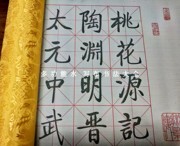 桃花源記
陶淵明晋
太元中武